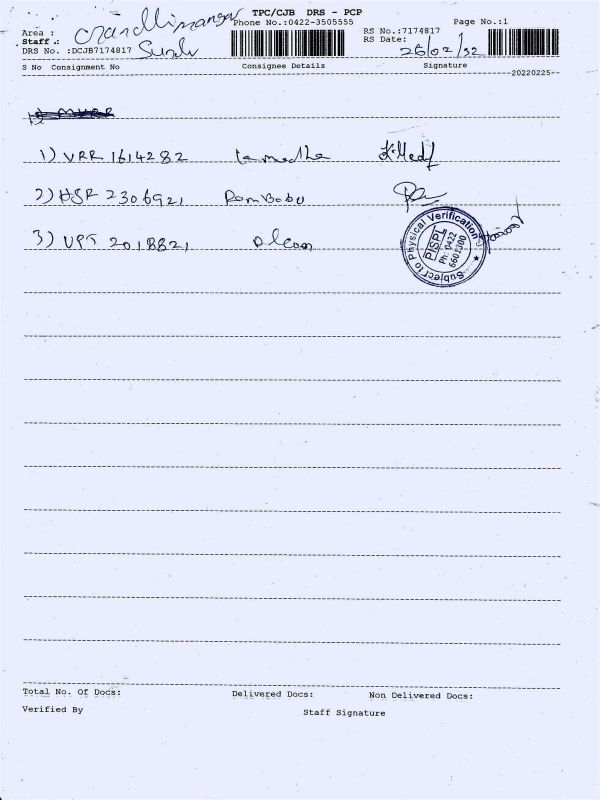 TPC/CJB DRS - PCP
Area :
Phone No.:0422-3505555
RS No.:7174817
Page No.:1
Staff : Sundu
RS Date: 26/02/22
DRS No. :DCJB7174817
S No Consignment No Consignee Details Signature
--20220225--
1) VRR 1614282
2) HSR 2306921 RamBabu
3) VPT 2018821
Subject to Physical Verification
PISPL
Ph: 0422
6601300
Total No. Of Docs: Delivered Docs: Non Delivered Docs:
Verified By Staff Signature